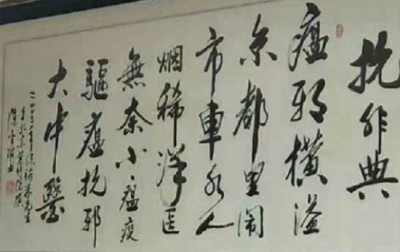 抗非典
瘟邪橫溢
京都里闹
市車少人
烟稀洋医
無奈小瘟疫
驅瘟抗邪
大中醫